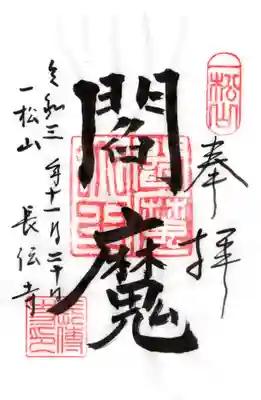 一松山
奉拝
閻魔
令和三年十一月二十日
一松山 長伝寺